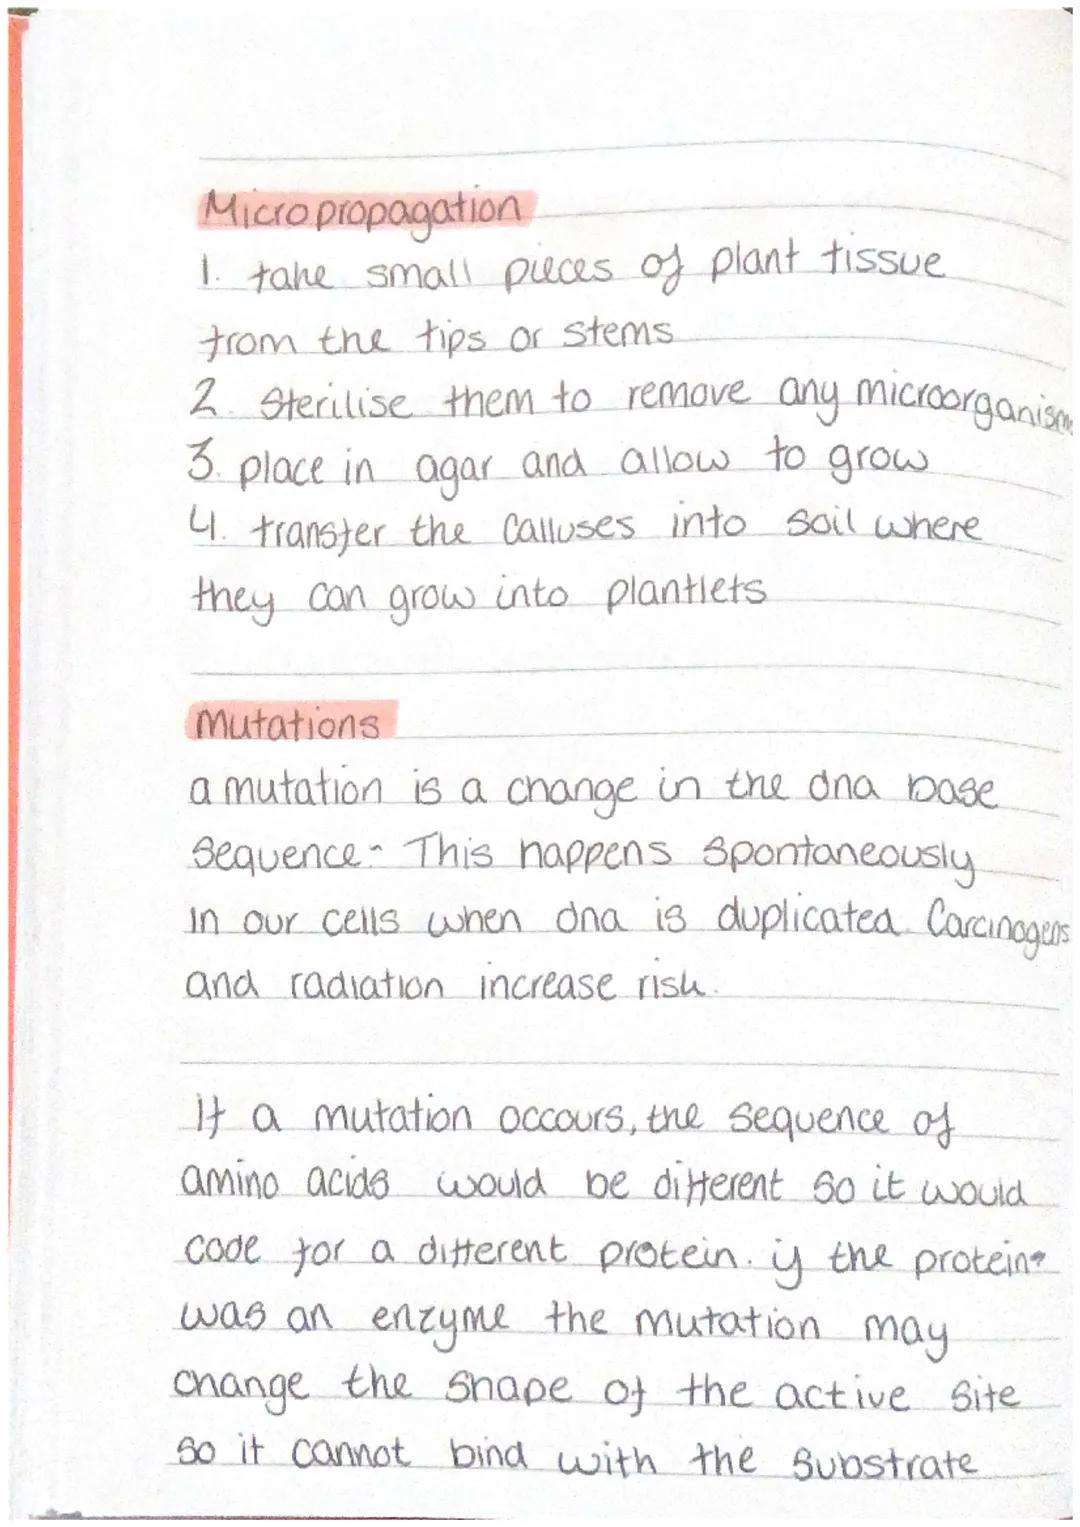 Micropropagation
1. take small pieces of plant tissue
from the tips or stems
2. Sterilise them to remove any microorganisms
3. place in agar and allow to grow
4. transfer the calluses into soil where
they can grow into plantlets
Mutations
a mutation is a change in the dna base
sequence - This happens spontaneously
in our cells when dna is duplicated. Carcinogens
and radiation increase risk.
If a mutation occours, the sequence of
amino acids would be different so it would
code for a different protein. if the protein
was an enzyme the mutation may
change the shape of the active site
so it cannot bind with the substrate